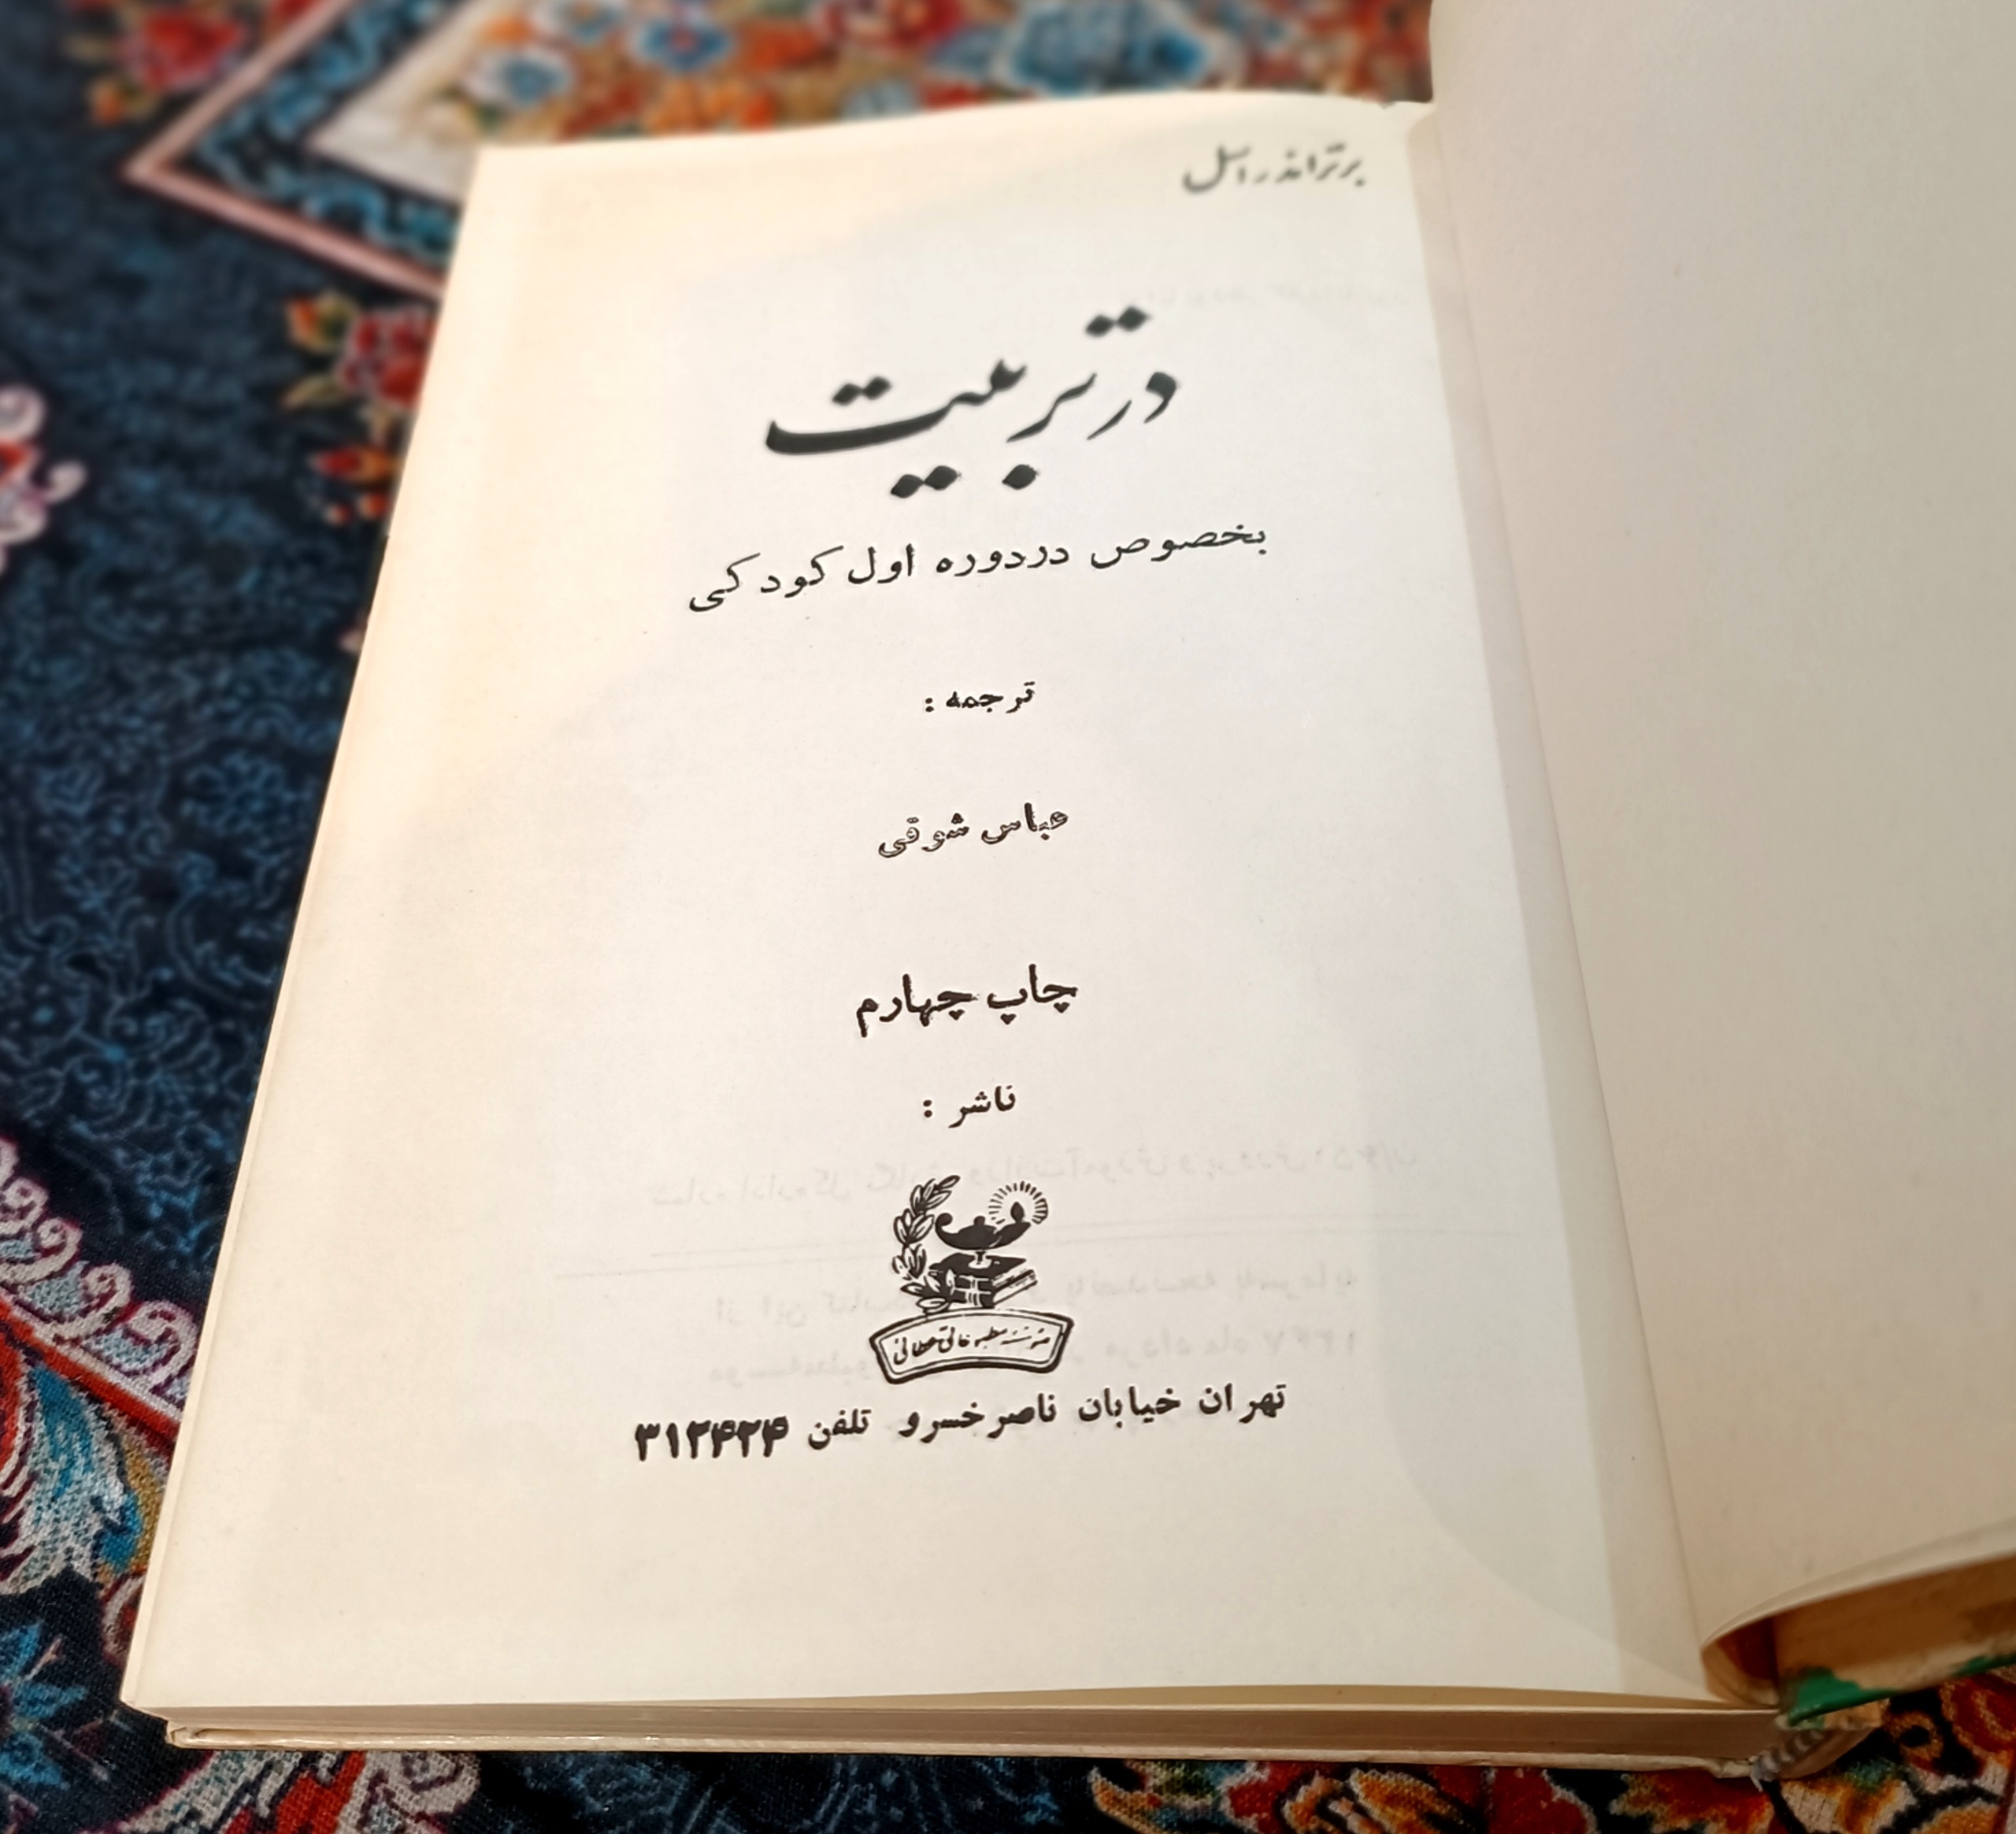 برتراند راسل
در تربیت
بخصوص در دوره اول کودکی
ترجمه :
عباس شوقی
چاپ چهارم
ناشر :
مؤسسه مطبوعاتی عطائی
تهران خیابان ناصر خسرو تلفن ۳۱۲۴۲۴